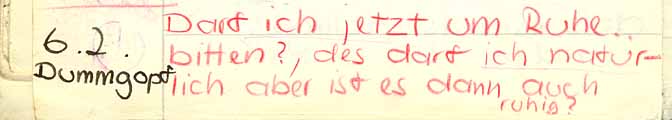 6.2.
Dummgopf
Darf ich jetzt um Ruhe..
bitten?, des darf ich natür-
lich aber ist es dann auch
ruhig?